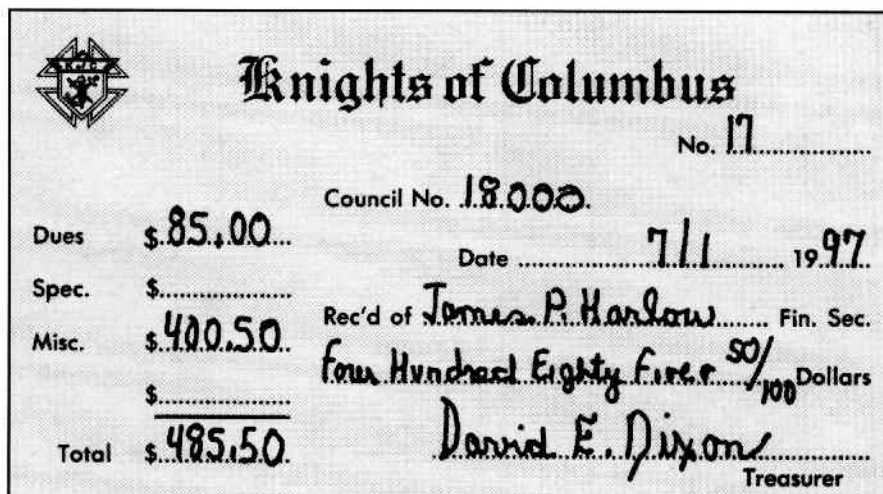 K of C
Knights of Columbus
No. 17
Council No. 18000
Dues $ 85.00
Date 7/1 1997
Spec. $
Rec'd of James P. Harlow Fin. Sec.
Misc. $ 400.50
Four Hundred Eighty Five & 50/100 Dollars
$
Total $ 485.50
David E. Dixon
Treasurer